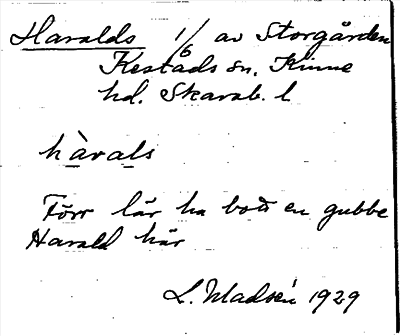 Haralds 1/6 av Storgården
Kestads sn. Kinne
hd. Skarab. l
hàrals
Förr lär ha bott en gubbe
Harald här
L. Madsén 1929